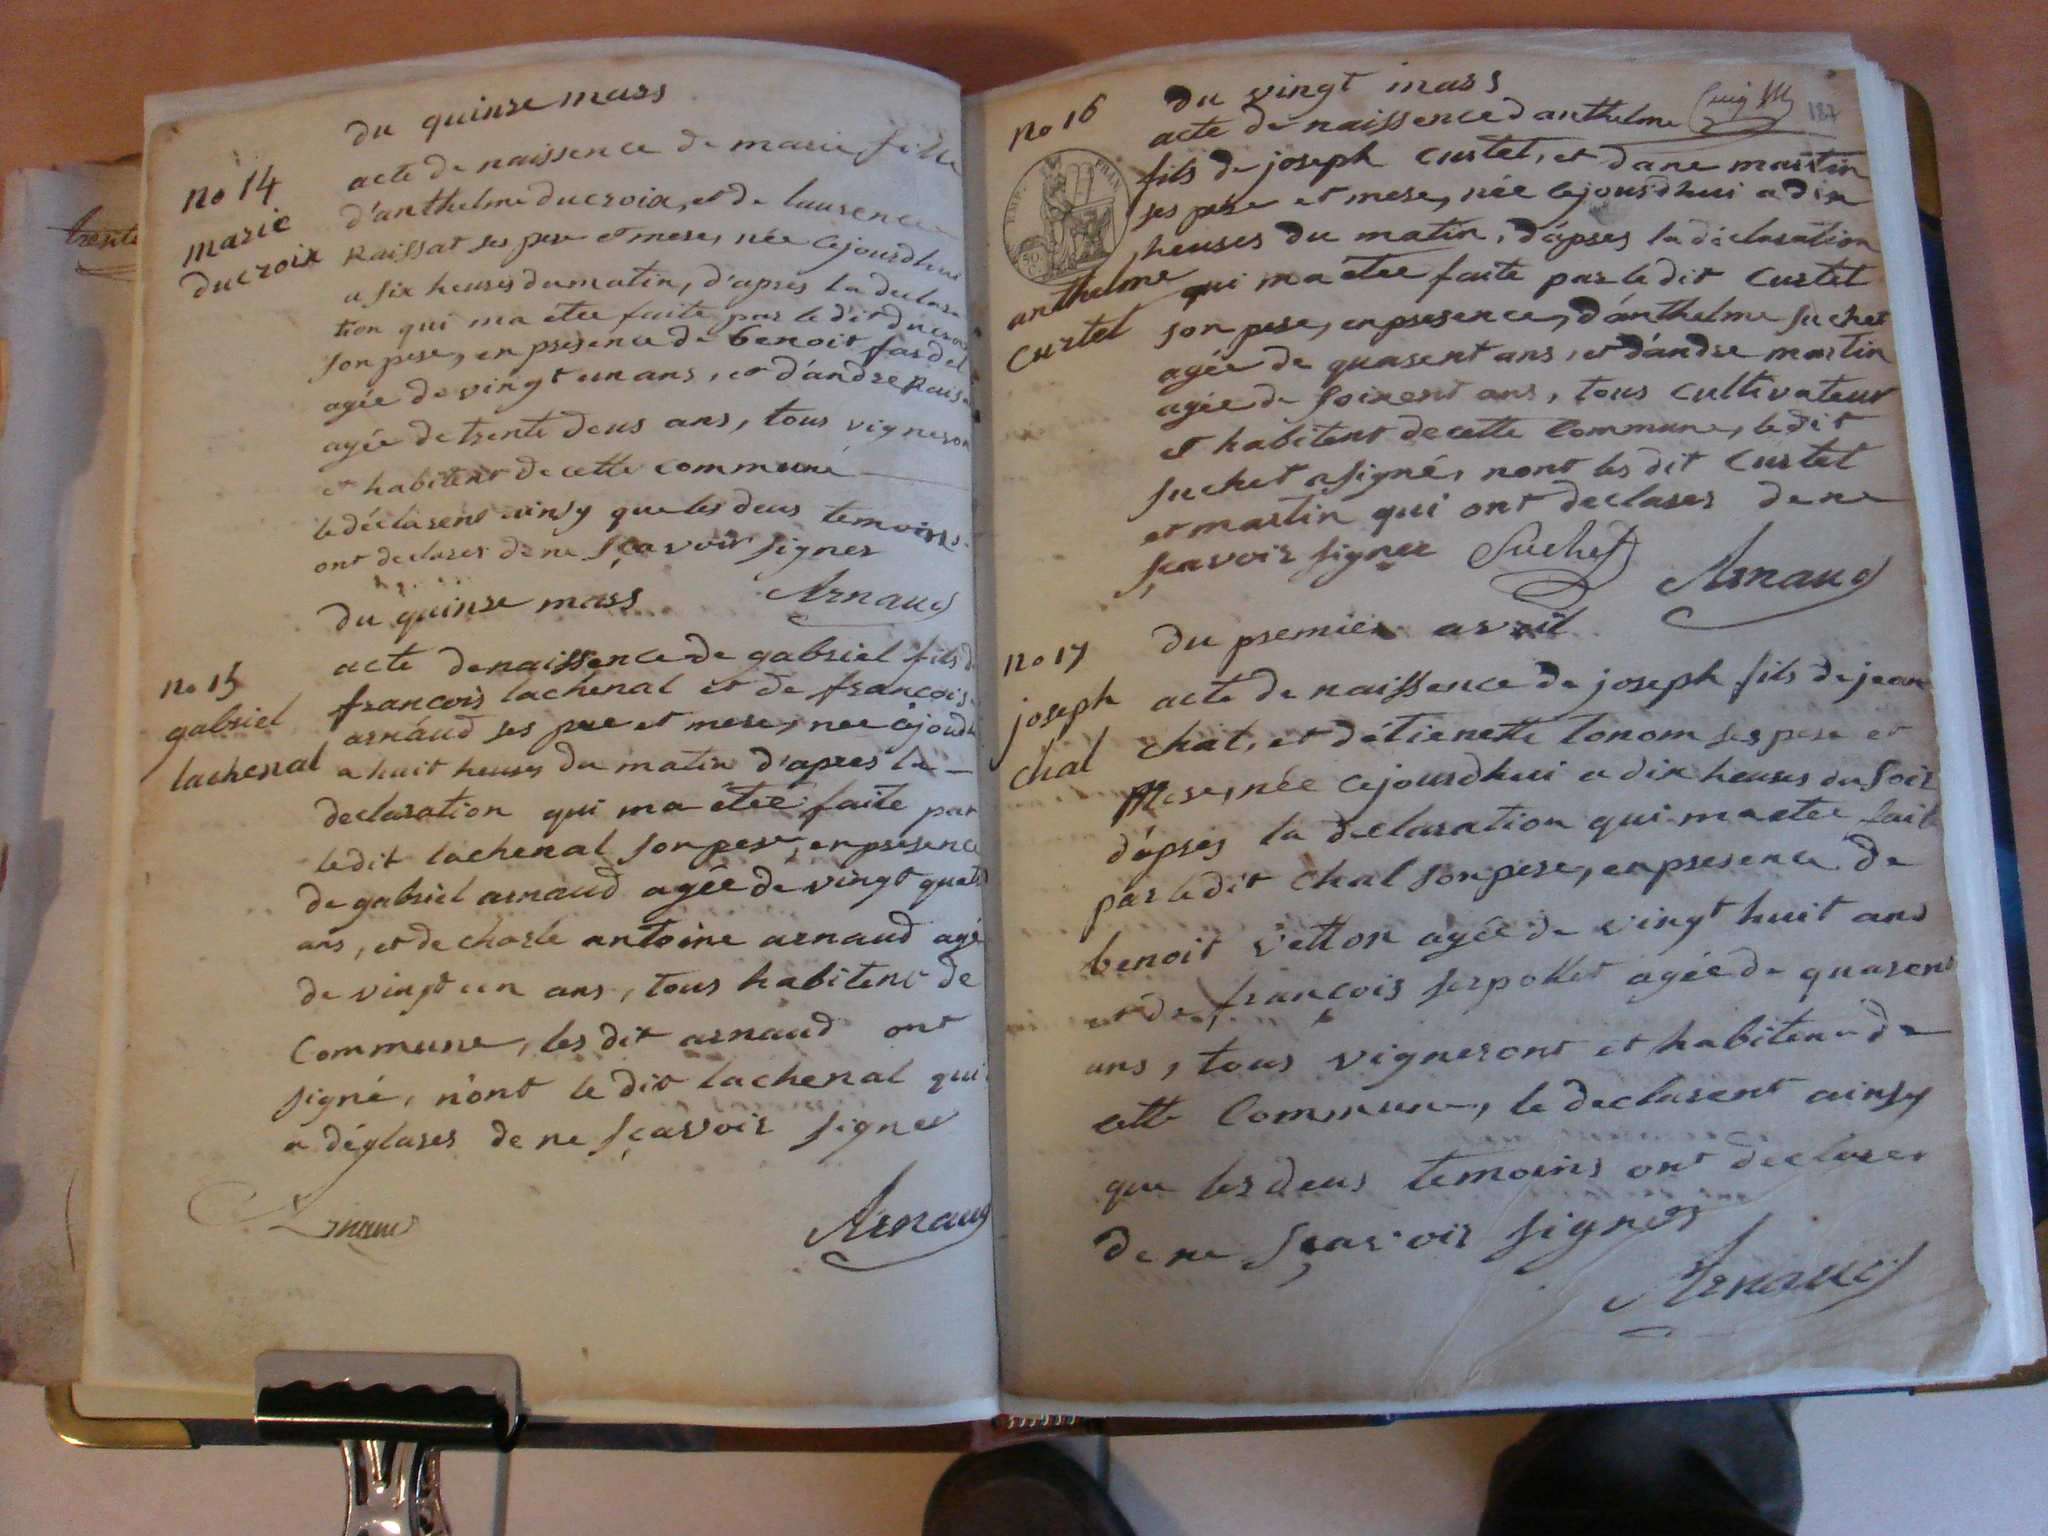 du quinse mars
no 14
marie
ducroix
acte de naissence de marie fille
d'anthelme ducroix, et de laurence
Raissat ses pere et mere, née cejourdhui
a six heures du matin, d'apres la declara
tion qui ma étée faite par le dit ducroi
son pere, en presence de benoit fardel
agée de vingt un ans, et d'andre Raiss
agée de trente deus ans, tous vigneron
et habitent de cette commune
le déclarent ainsy que les deus temoins
ont declarer de ne sçavoir signer
Arnaud
du quinse mars
no 15
gabriel
lachenal
acte de naissence de gabriel fils d
françois lachenal et de françois
arnaud ses pere et mere, née cejourd
a huit heures du matin d'apres la
declaration qui ma étée faite par
ledit lachenal son pere, en presence
de gabriel arnaud agée de vingt quatr
ans, et de charle antoine arnaud agé
de vingt un ans, tous habitent de
Commune, les dit arnaud ont
signé, nont le dit lachenal qui
a déglarer de ne sçavoir signer
Arnaud
Arnaud
187
du vingt mars
no 16
EMP. FRAN.
50
C.
anthelme
Curtet
acte de naissence d anthelme
fils de joseph Curtet, et dane martin
ses pere et mere, née cejourdhui a dix
heures du matin, d'apres la déclaration
qui ma étée faite par le dit Curtet
son pere, en presence, d'anthelme suchet
agée de quarent ans, et d'andre martin
agée de soixent ans, tous cultivateur
et habitent de cette Commune, le dit
suchet a signé, nont les dit Curtet
et martin qui ont declarer de ne
sçavoir signer
Suchet
Arnaud
du premier avril
no 17
joseph
chal
acte de naissence de joseph fils de jean
chal, et d'étienette tonom ses pere et
mere, née cejourdhui a dix heures du soir
d'apres la declaration qui ma étée fait
par le dit chal son pere, en presence de
benoit vetton agée de vingt huit ans
et de françois serpollet agée de quarent
ans, tous vigneront et habitent de
cette Commune, le declarent ainsy
que les deus temoins ont declarer
de ne sçavoir signer
Arnaud